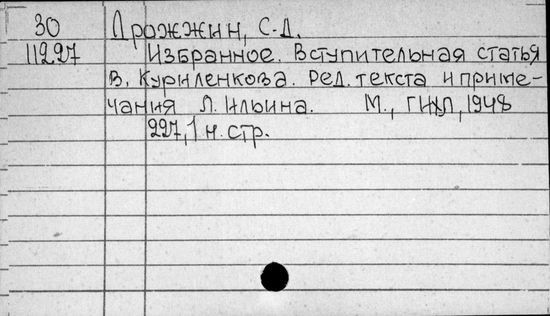 30 Дрожжин, С.Д.
11227 Избранное. Вступительная статья
В. Куриленкова. Ред. текста и приме-
чания Л. Ильина. М., ГИХЛ, 1948
227, 1 н. стр.